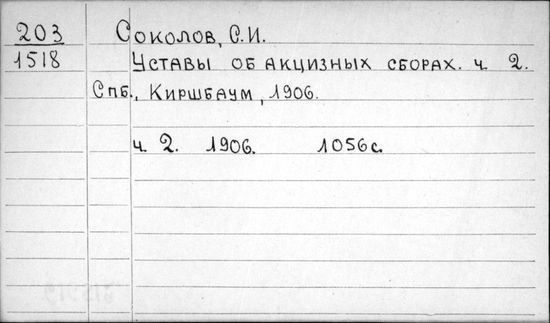 203
1518
Соколов, С.И.
Уставы об акцизных сборах. ч. 2.
Спб., Киршбаум, 1906.
ч. 2. 1906. 1056с.